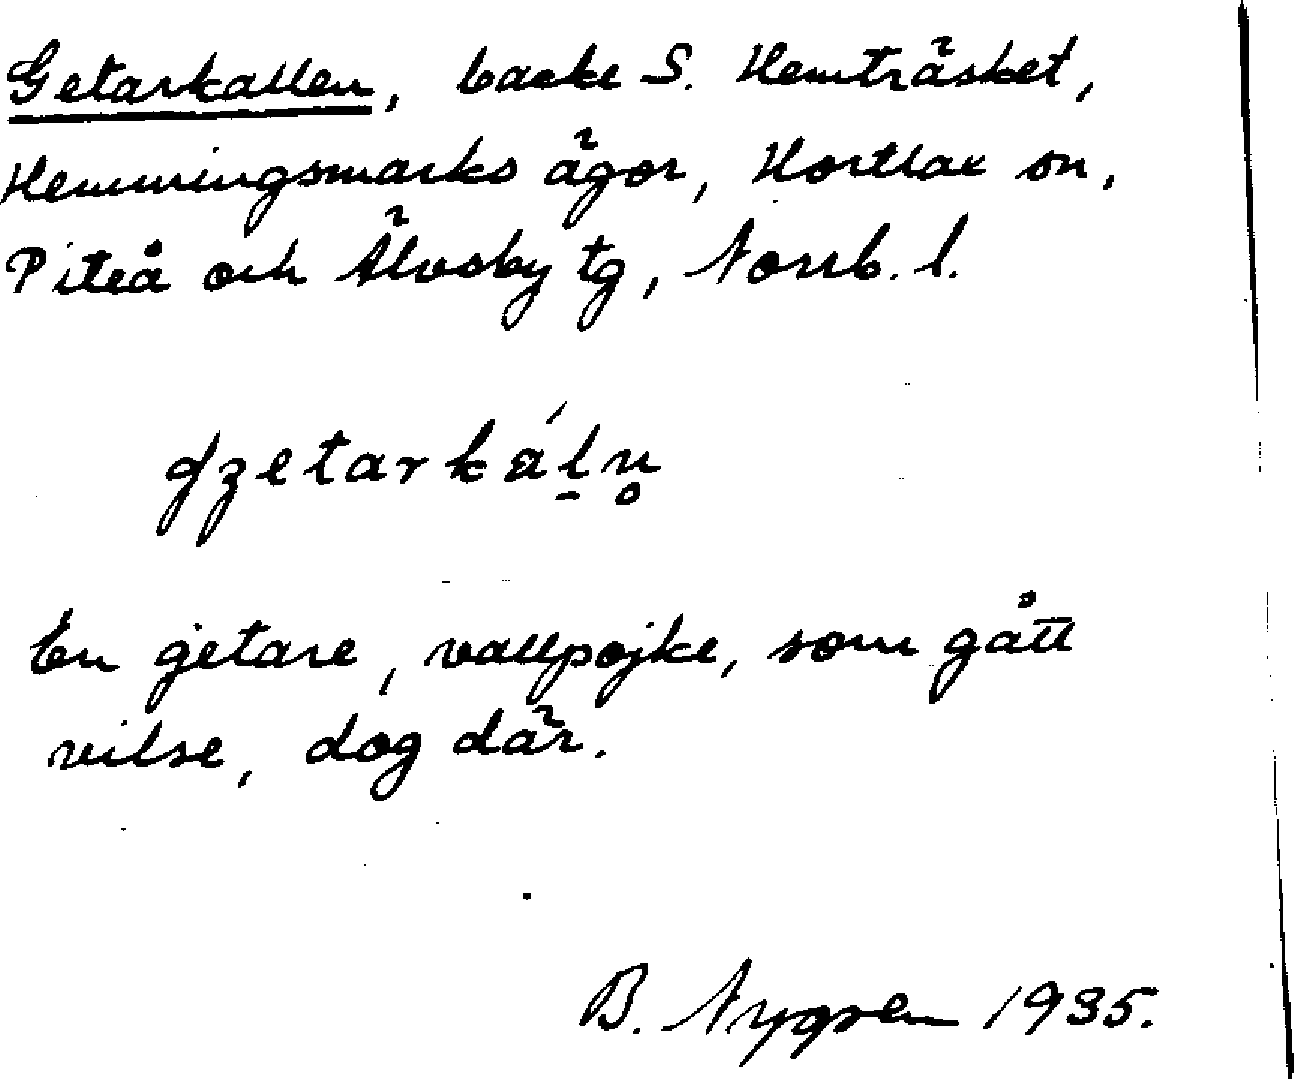 Getarkallen, backe S. Hemträsket,
Hemmingsmarks ägor, Hortlax sn,
Piteå och Älvsby tg, Norrb. l.
gʒetarkáḻn̥
En getare, vallpojke, som gått
vilse, dog där.
B. Nygren 1935.